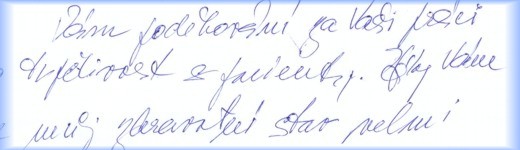 Vám poděkování za Vaši péči
trpělivost s pacienty. Díky Vám
můj zdravotní stav velmi